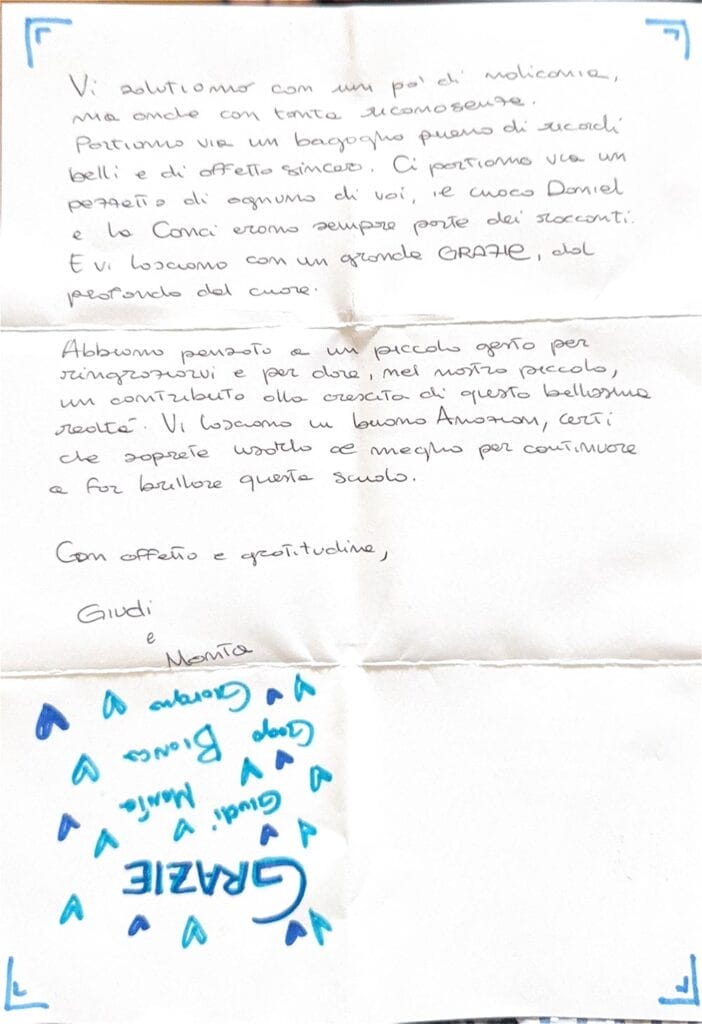 Vi salutiamo con un po' di maliconia,
ma anche con tanta riconosenza.
Portiamo via un bagaglio pieno di ricordi
belli e di affetto sincero. Ci portiamo via un
pezzetto di ognuno di voi, il cuoco Daniel
e la Conci erano sempre parte dei racconti.
E vi lasciamo con un grande GRAZIE, dal
profondo del cuore.
Abbiamo pensato a un piccolo gesto per
ringraziarvi e per dare, nel nostro piccolo,
un contributo alla crescita di questa bellissima
realtà. Vi lasciamo un buono Amazon, certi
che saprete usarlo al meglio per continuare
a far brillare questa scuola.
Con affetto e gratitudine,
Giudi
e
Monta
GRAZIE
Giudi Monta
Bianca